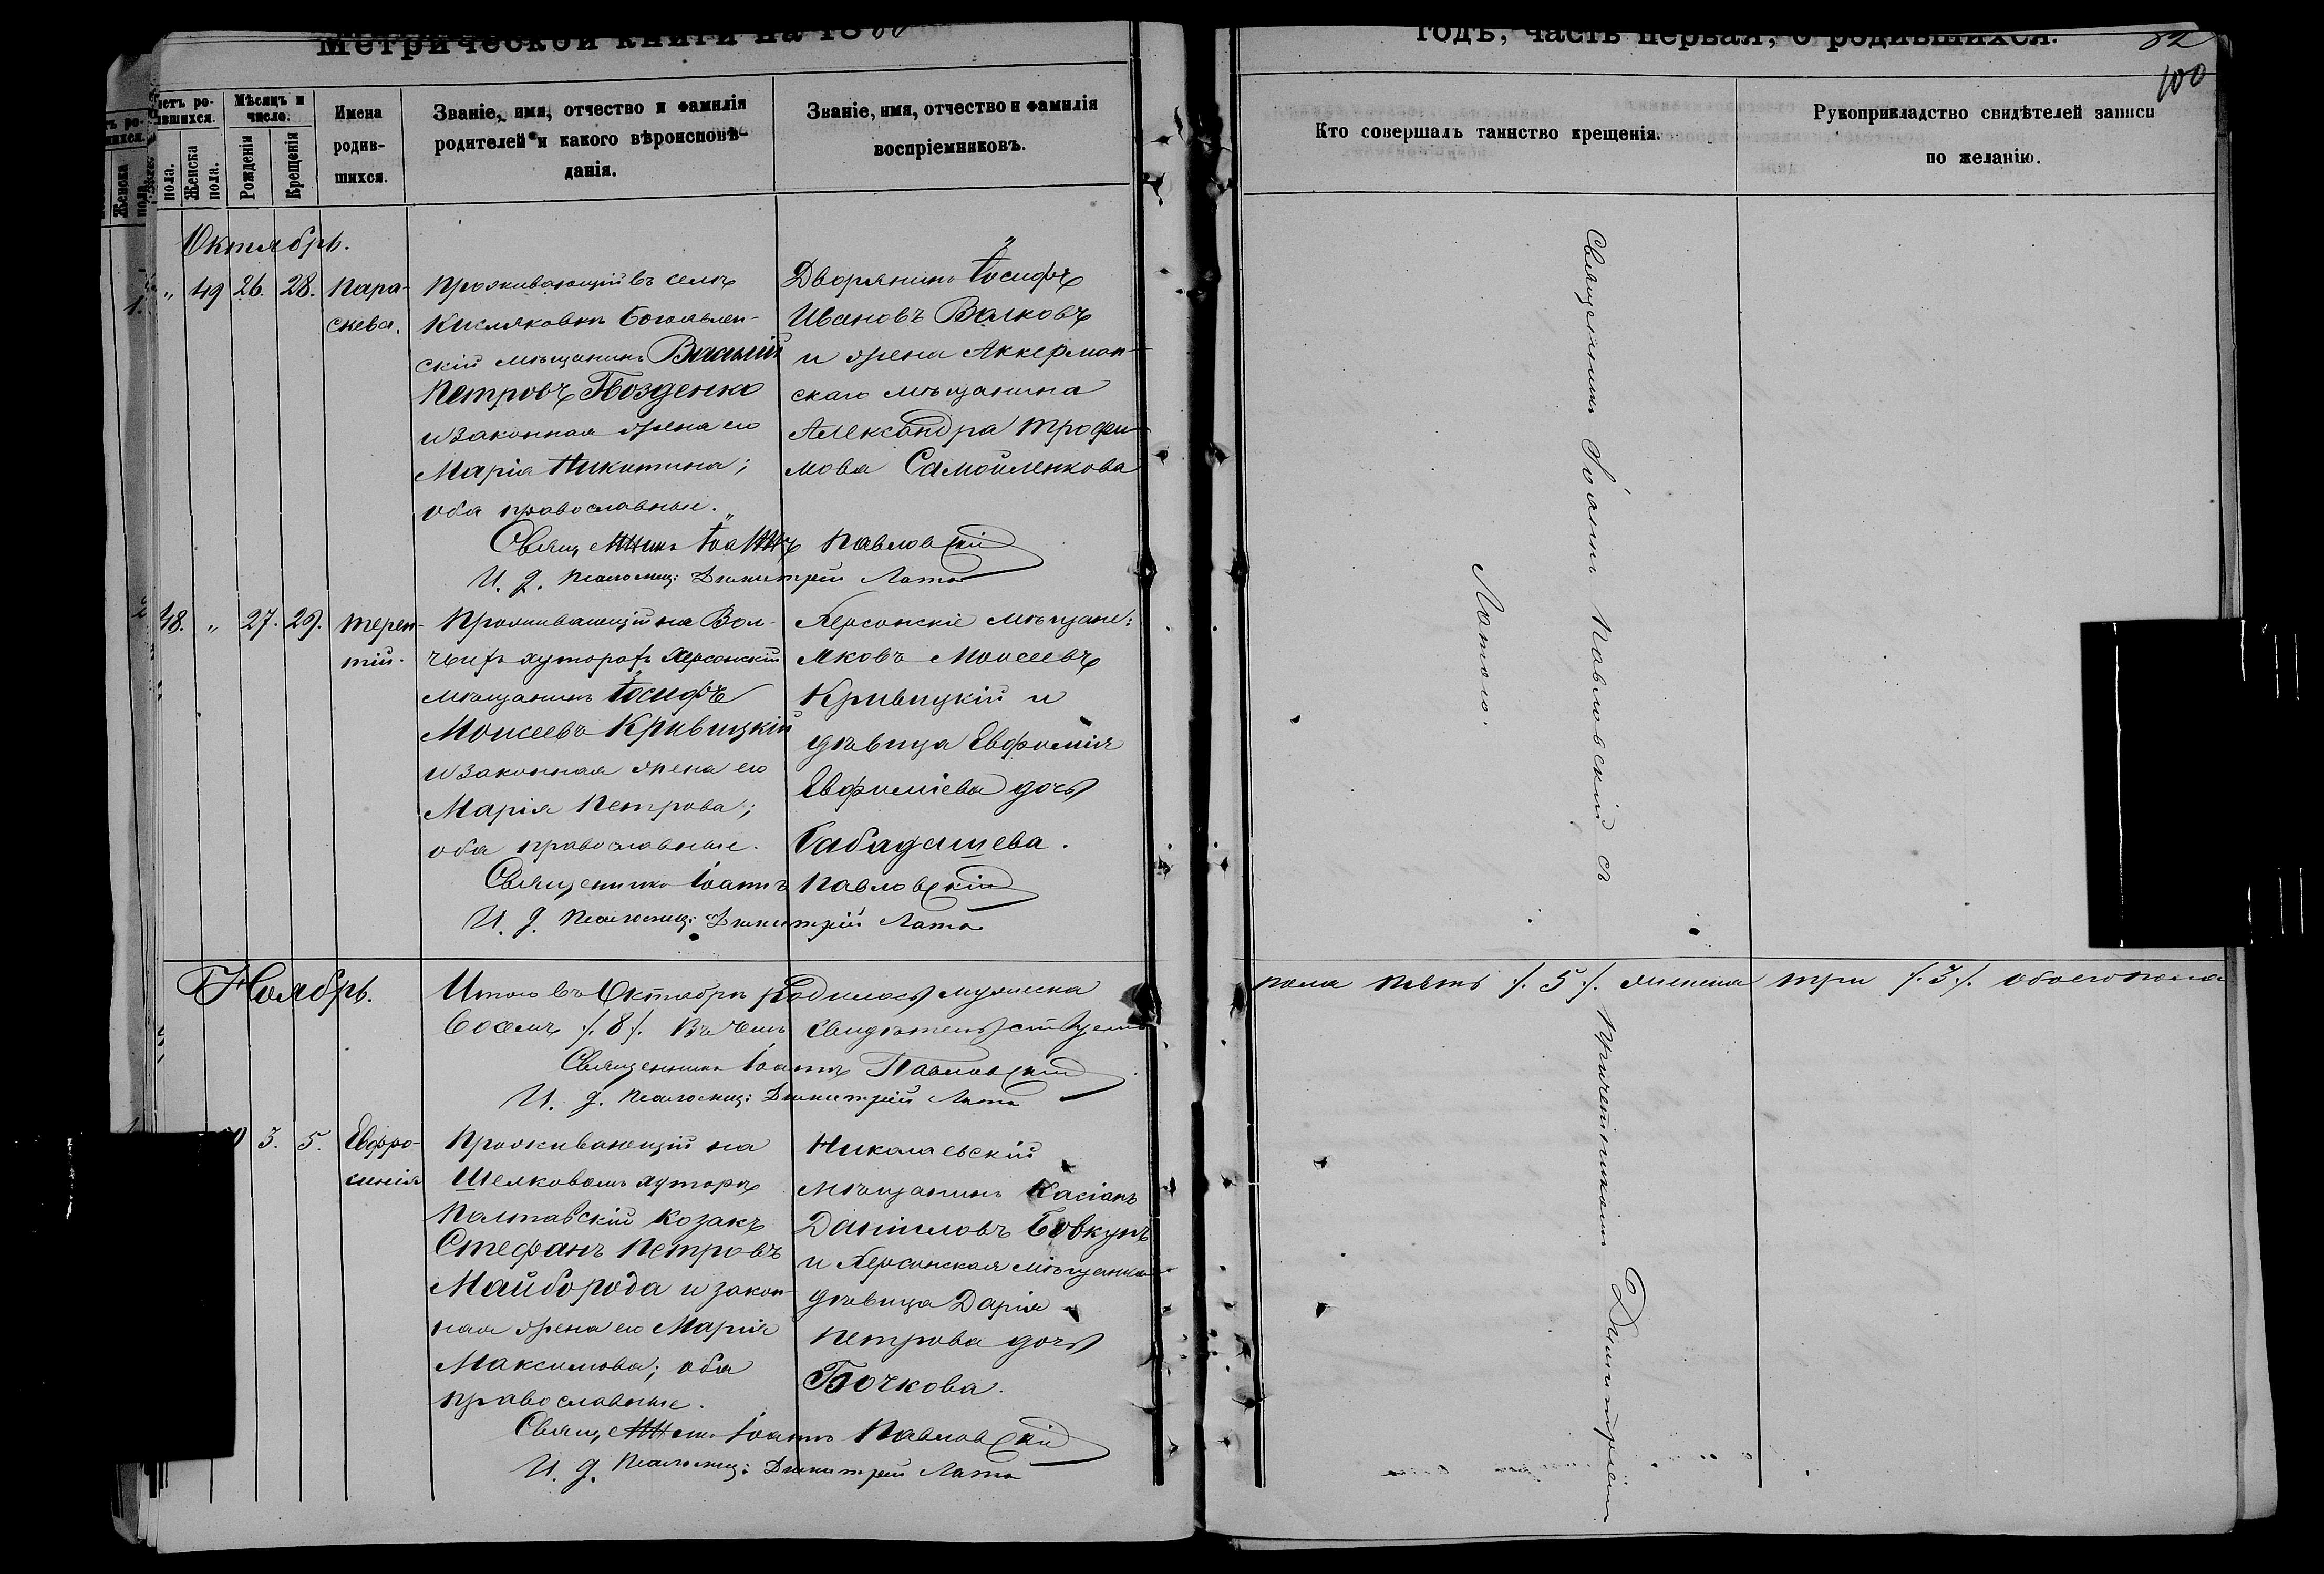 Метрической книги на 18
годъ, часть первая, о родившихся.
82
100
Счетъ ро-
дившихся.
Мѣсяцъ и
число.
пола.
Женска
пола.
Рожденія
Крещенія
Имена
родив-
шихся.
Званіе, имя, отчество и фамилія
родителей и какого вѣроисповѣ-
данія.
Званіе, имя, отчество и фамилія
воспріемниковъ.
Кто совершалъ таинство крещенія.
Рукоприкладство свидѣтелей записи
по желанію.
Октябрь.
" 49 26. 28. Пара-
скева.
Проживающій въ селѣ
Кисляковкѣ Богоявлен-
скій мѣщанинъ Василій
Петровъ Гвозденко
и законная жена его
Марія Никитина;
оба православные.
Дворянинъ Іосифъ
Ивановъ Волковъ
и жена Аккерман-
скаго мѣщанина
Александра Трофи-
мова Самойленкова
Священникъ Іоаннъ Павловскій
И. д. Псаломщ: Димитрій Лата
48. " 27. 29. Терен-
тій.
Проживающій на Вол-
чьихъ хуторахъ Херсонскій
мѣщанинъ Іосифъ
Моисеевъ Кривицкій
и законная жена его
Марія Петрова;
оба православные.
Херсонскіе мѣщане:
Яковъ Моисеевъ
Кривицкій и
дѣвица Евфимія
Евфиміева дочь
Габадашева.
Священникъ Іоаннъ Павловскій
И. д. Псаломщ: Димитрій Лата
Ноябрь.
Итого въ Октябрѣ родилось мужеска пола пять /. 5 /. женска три /. 3 /. обоего пола
восемь /. 8 /. Въ чемъ свидѣтельствуемъ
Священникъ Іоаннъ Павловскій
И. д. Псаломщ: Димитрій Лата
3. 5. Евфро-
синія
Проживающій на
Шелковомъ хуторѣ
Полтавскій козакъ
Стефанъ Петровъ
Майборода и закон-
ная жена его Марія
Максимова; оба
православные.
Николаевскій
мѣщанинъ Касіанъ
Даніиловъ Бовкунъ
и Херсонская мѣщанка
дѣвица Дарія
Петрова дочь
Бочкова.
Священникъ Іоаннъ Павловскій
И. д. Псаломщ: Димитрій Лата
Священникъ Іоаннъ Павловскій съ Причетникомъ Димитріемъ
Латою.